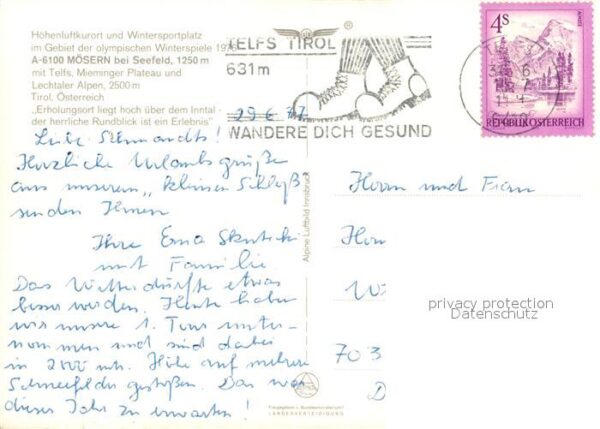 Höhenluftkurort und Wintersportplatz
im Gebiet der olympischen Winterspiele 1976
A-6100 MÖSERN bei Seefeld, 1250 m
mit Telfs, Mieminger Plateau und
Lechtaler Alpen, 2500 m
Tirol, Österreich
„Erholungsort liegt hoch über dem Inntal -
der herrliche Rundblick ist ein Erlebnis"
TELFS TIROL
631 m
WANDERE DICH GESUND
4 S
REPUBLIK ÖSTERREICH
29.6.77
Liebe
Herzliche Urlaubsgrüße
aus unserem „kleinen Schloß
senden Ihnen
Ihre Erna
mit Familie
Das Wetter dürfte etwas
besser werden. Heute haben
wir unsere 1. Tour unter-
nommen und sind dabei
in 2100 m Höhe auf mehrere
Schneefelder gestoßen. Das war
dieses Jahr zu erwarten!
Alpine Luftbild Innsbruck
Herrn und Frau
703
D
privacy protection
Datenschutz
LANDESVERTEIDIGUNG